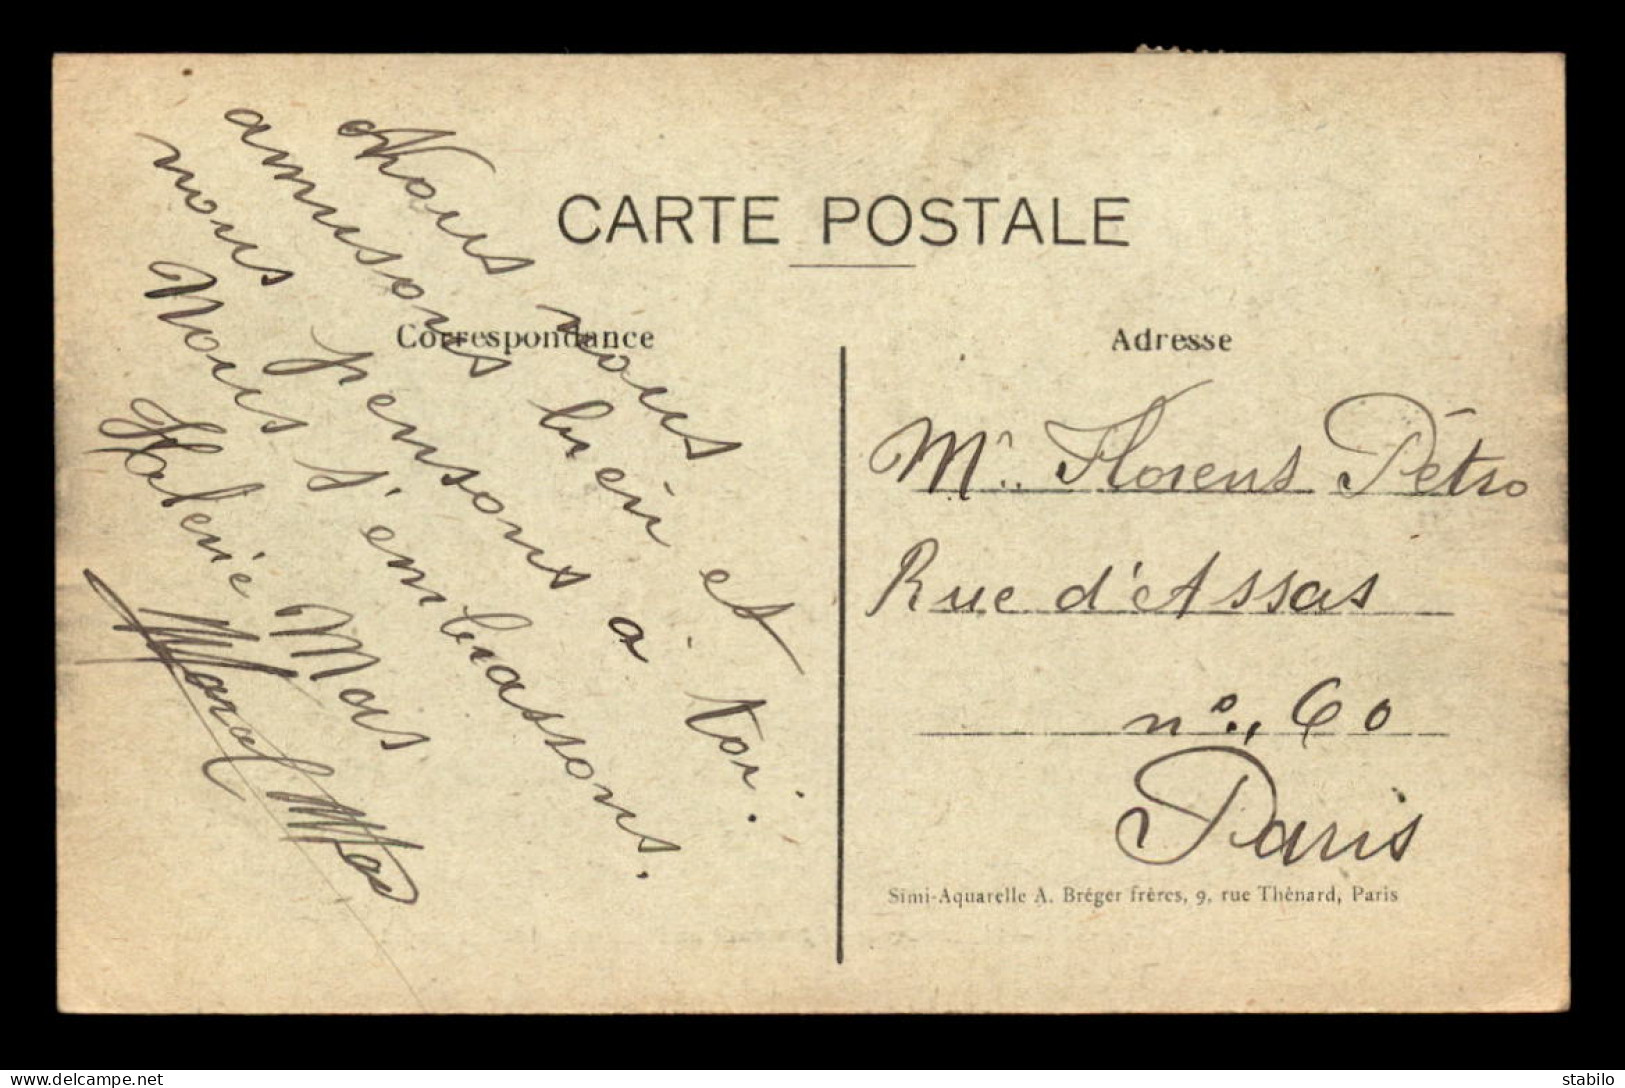 CARTE POSTALE
Correspondance
Nous nous
amusons bien et
nous pensons à toi.
Nous t'embrassons.
Valerie Mas
Marcel Mas
Adresse
Mr. Florens Pétro
Rue d'Assas
n°., 60
Paris
Simi-Aquarelle A. Bréger frères, 9, rue Thénard, Paris
delcampe.net
stabilo